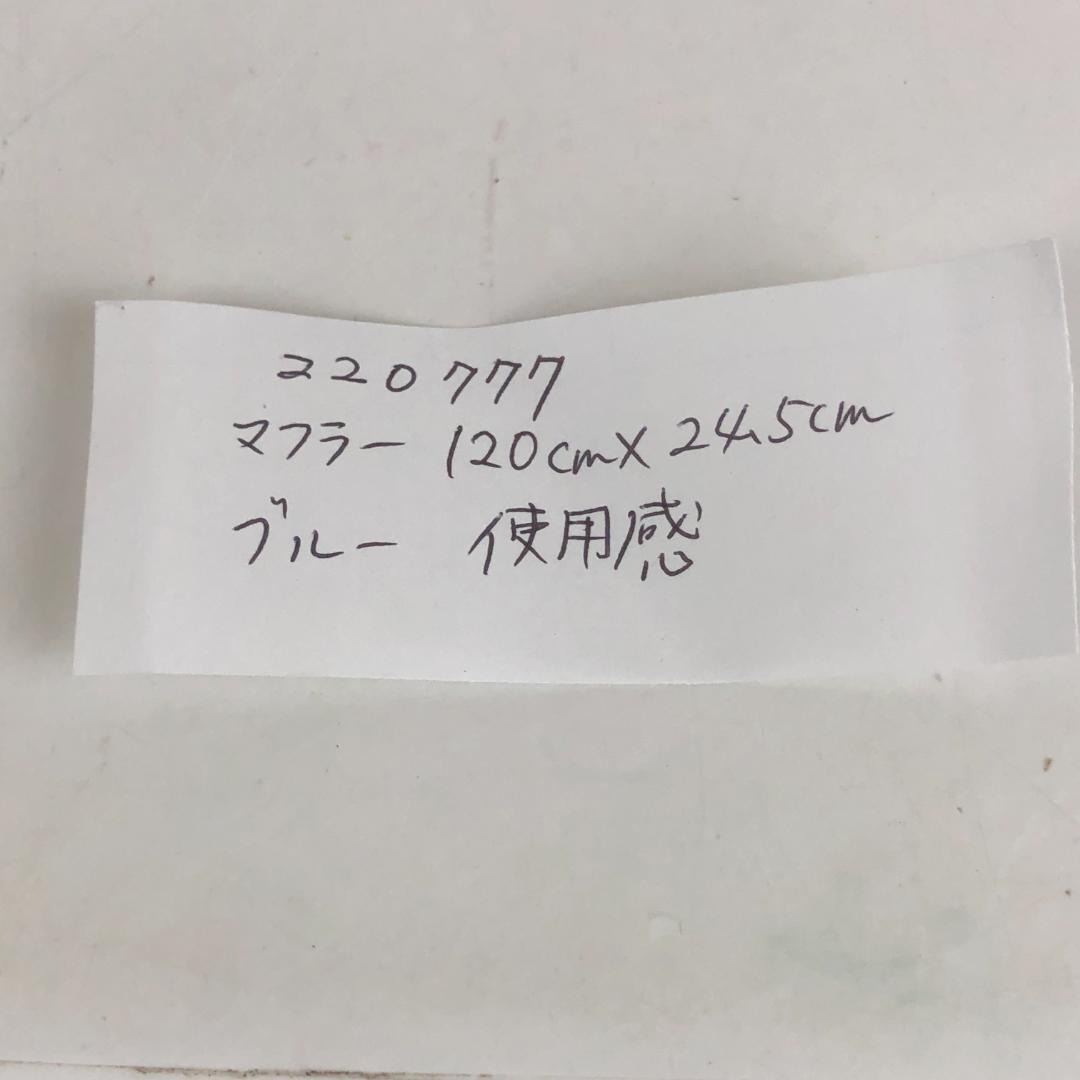 220777
マフラー 120cm×24.5cm
ブルー 使用感